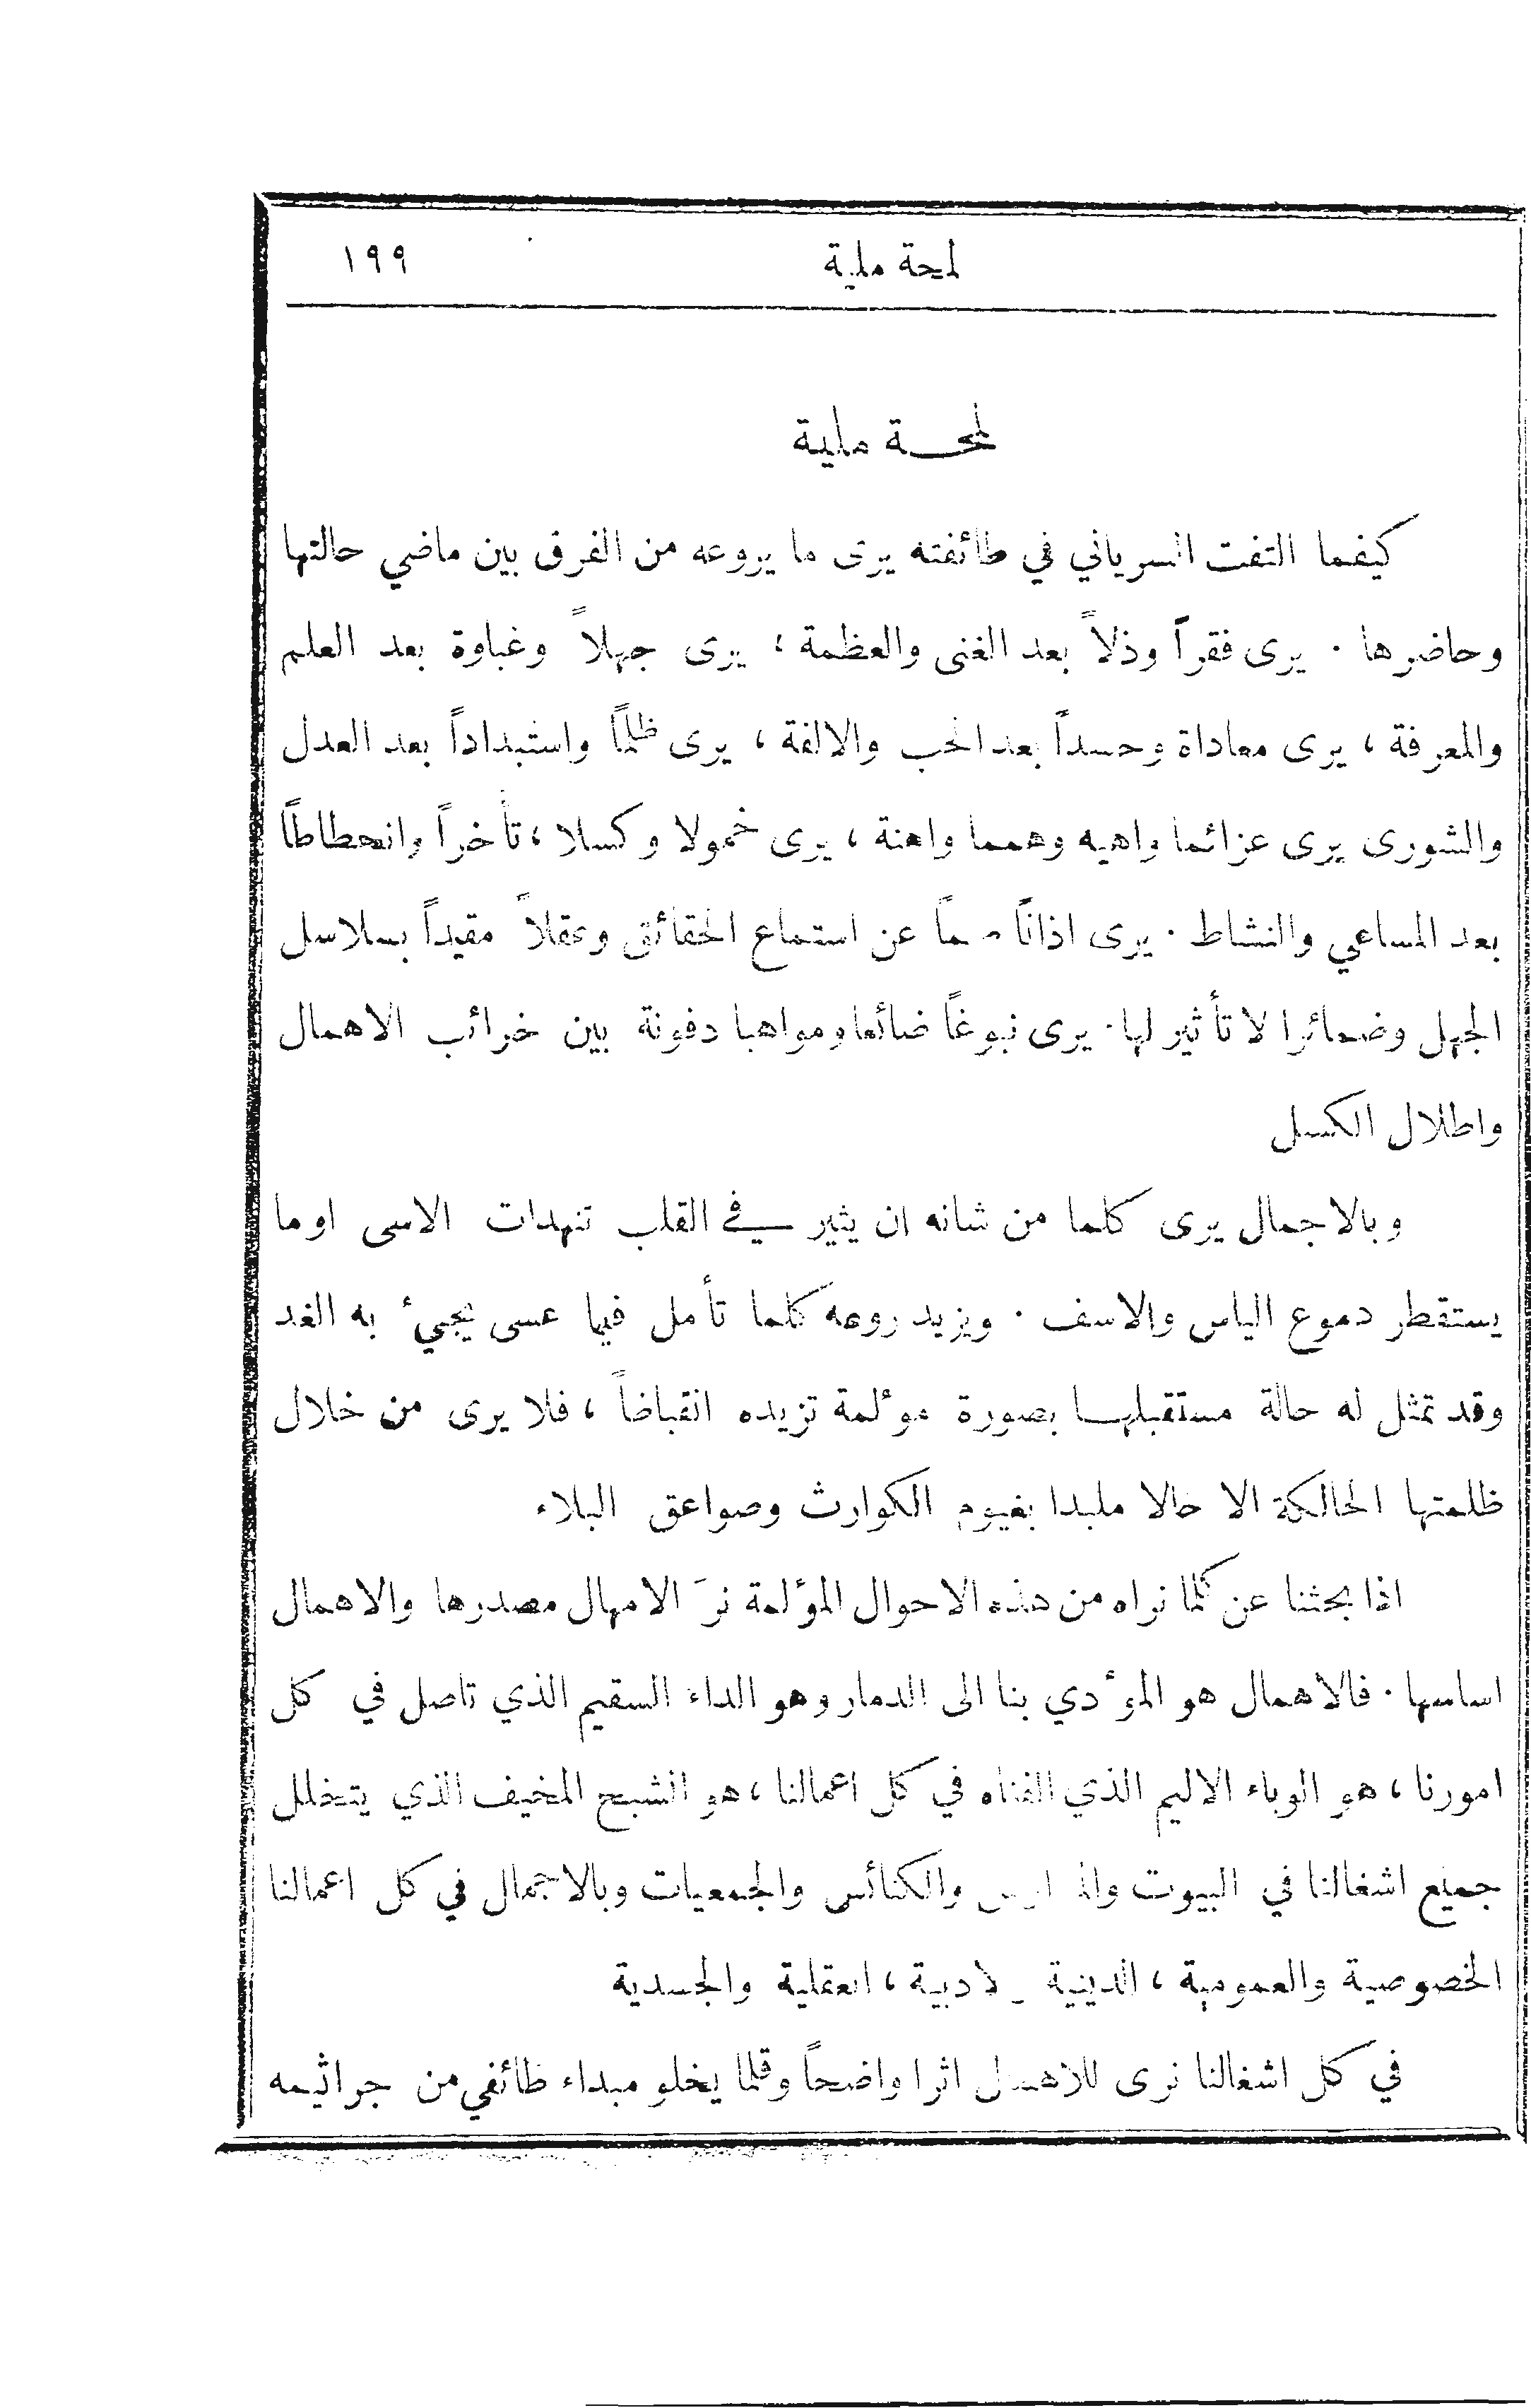 لمحة ملية ١٩٩
لمحـة ملية
كيفما التفت السرياني في طائفته يرى ما يروعه من الفرق بين ماضي حالتها
وحاضرها . يرى فقراً وذلاً بعد الغنى والعظمة ، يرى جهلاً وغباوة بعد العلم
والمعرفة ، يرى معاداة وحسداً بعد الحب والالفة ، يرى ظلماً واستبداداً بعد العدل
والشورى يرى عزائما واهيه وهمما واهنة ، يرى خمولا وكسلا ، تأخراً وانحطاطاً
بعد المساعي والنشاط . يرى اذاناً صماً عن استماع الحقائق وعقلاً مقيداً بسلاسل
الجهل وضمائرا لا تأثير لها . يرى نبوغاً ضائعا ومواهبا دفونة بين خرائب الاهمال
واطلال الكسل
وبالاجمال يرى كلما من شانه ان يثير في القلب تنهدات الاسى او ما
يستقطر دموع الياس والاسف . ويزيد روعه كلما تأمل فيما عسى يجيئ به الغد
وقد تمثل له حالة مستقبلهـا بصورة موءلمة تزيده انقباضاً ، فلا يرى من خلال
ظلمتها الحالكة الا حالا ملبدا بغيوم الكوارث وصواعق البلاء
اذا بحثنا عن كلما نراه من هذه الاحوال المؤلمة نرَ الامهال مصدرها والاهمال
اساسها . فالاهمال هو الموءدي بنا الى الدمار وهو الداء السقيم الذي تاصل في كل
امورنا ، هو الوباء الاليم الذي الفناه في كل اعمالنا ، هو الشبح المخيف الذي يتخلل
جميع اشغالنا في البيوت والكنائس والجمعيات وبالاجمال في كل اعمالنا
الخصوصية والعمومية ، الدينية ، العقلية والجسدية
في كل اشغالنا نرى للاهمال اثرا واضحاً وقلما يخلو مبداء طائفي من جراثيمه